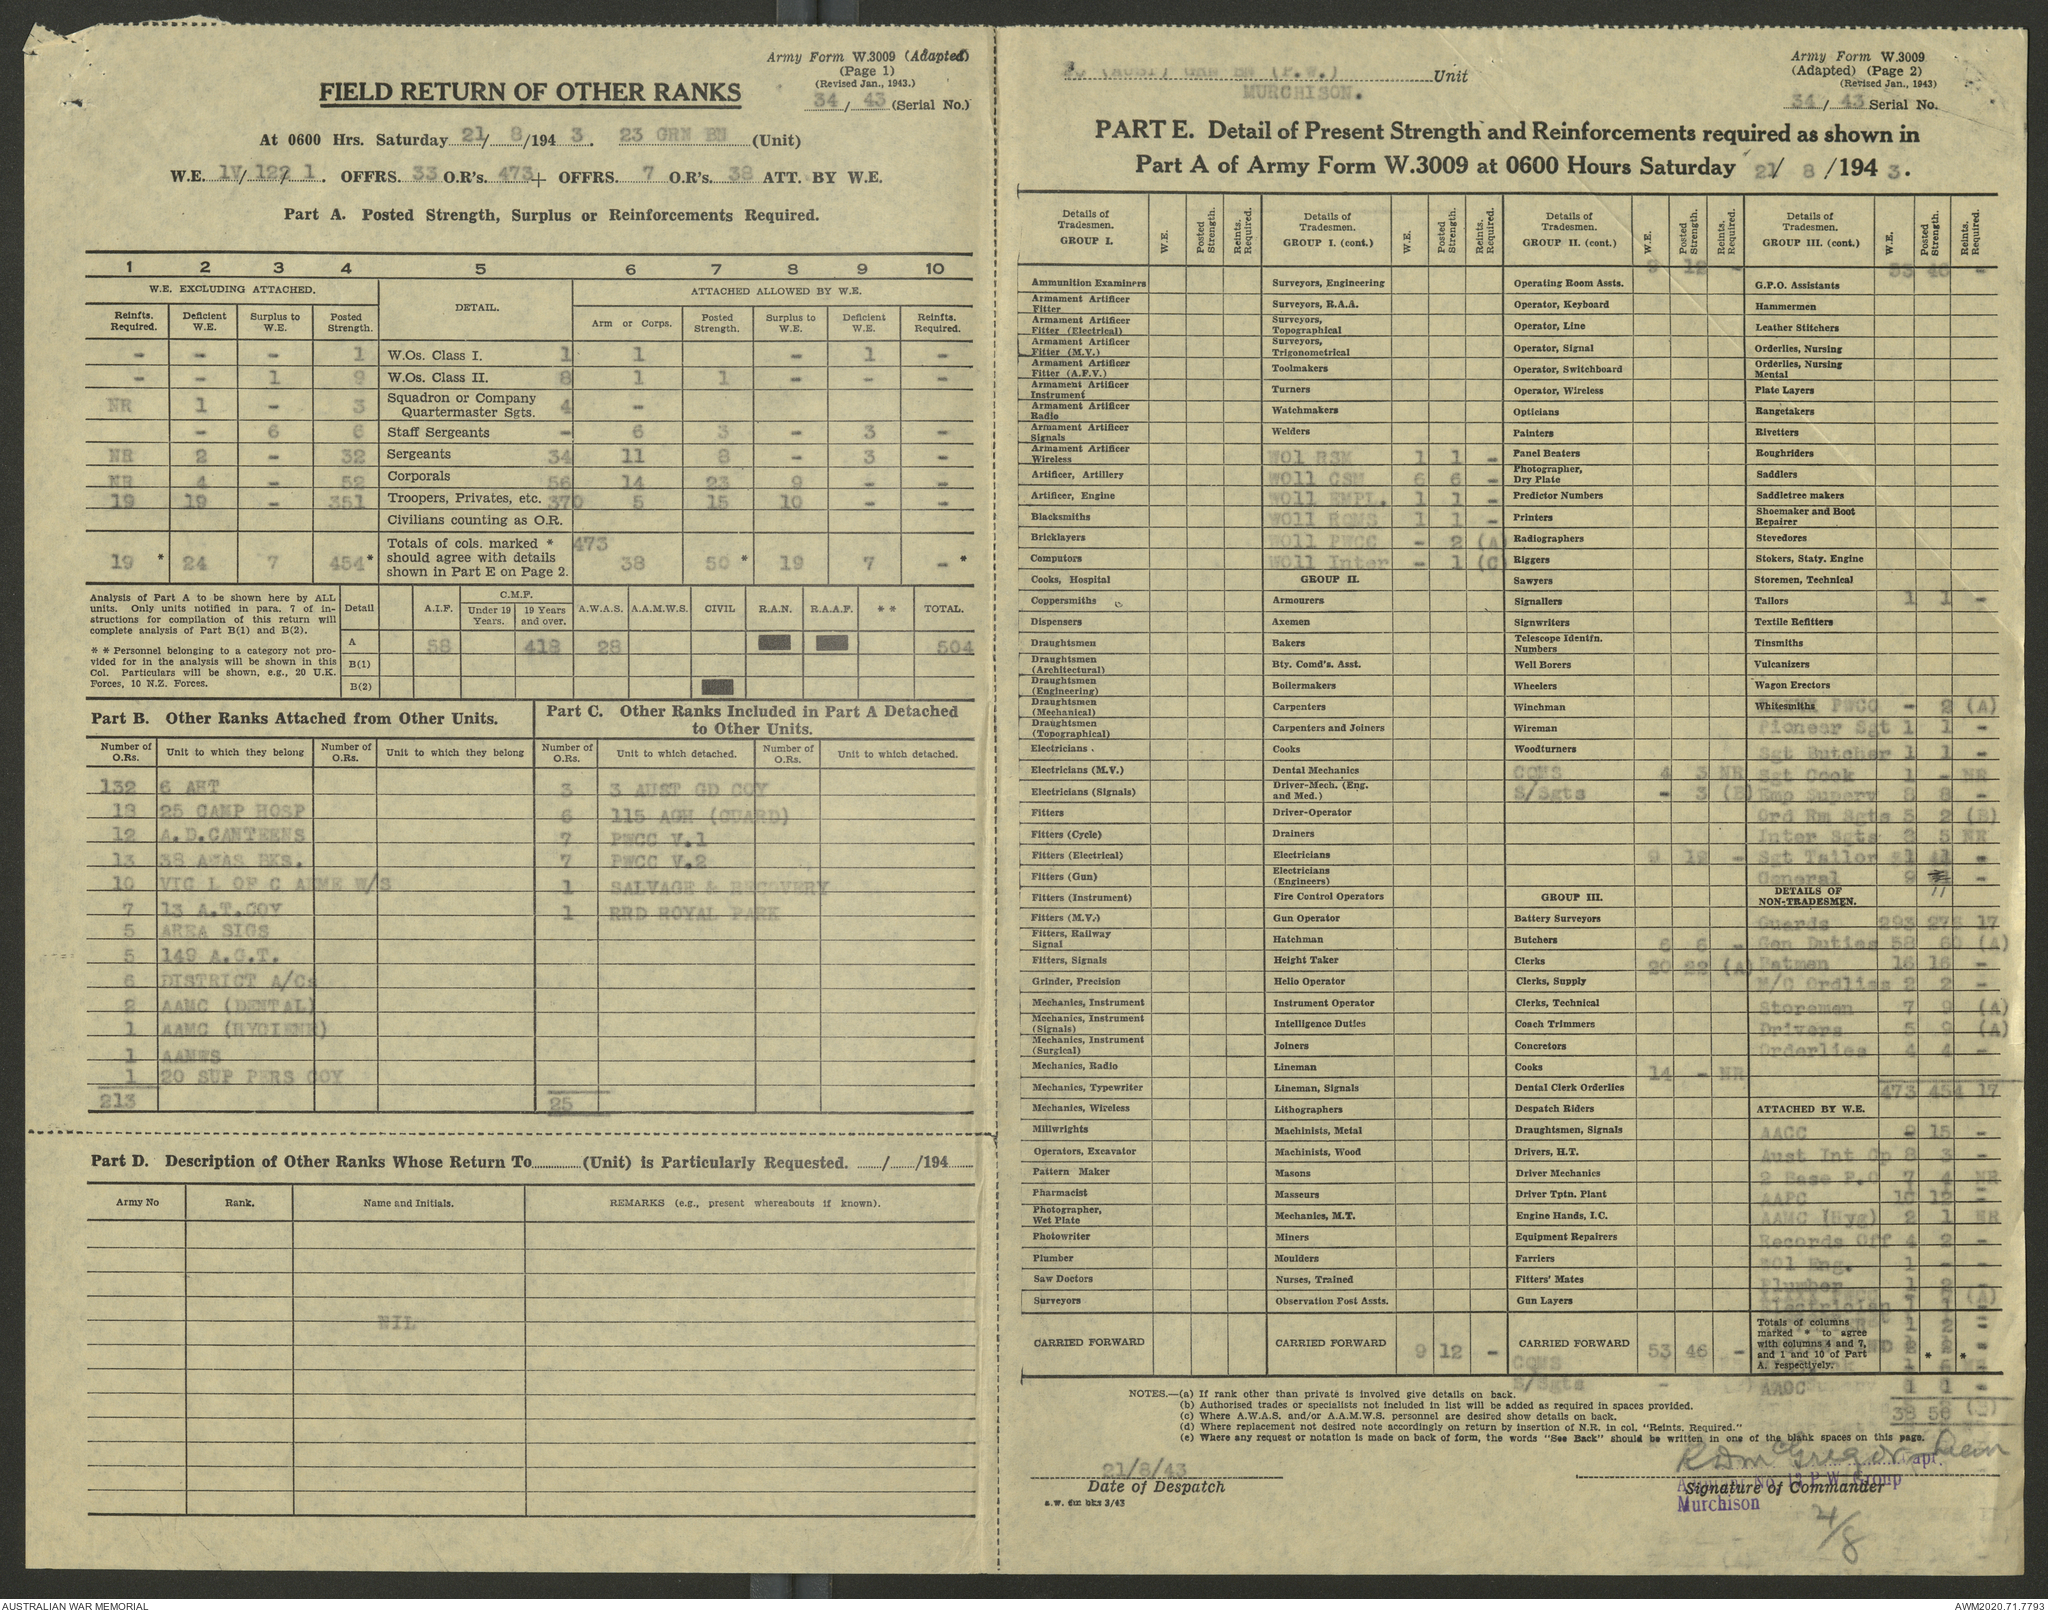 Army Form W.3009 (Adapted)
(Page 1)
(Revised Jan., 1943.)
34 / 43 (Serial No.)
FIELD RETURN OF OTHER RANKS
At 0600 Hrs. Saturday 21/ 8/194 3. 23 GRN BN (Unit)
W.E. 1V/ 122/ 1. OFFRS. 33 O.R's. 473+ OFFRS. 7 O.R's. 38 ATT. BY W.E.
Part A. Posted Strength, Surplus or Reinforcements Required.
1 2 3 4 5 6 7 8 9 10
W.E. EXCLUDING ATTACHED. DETAIL. ATTACHED ALLOWED BY W.E.
Reinfts. Required. Deficient W.E. Surplus to W.E. Posted Strength. Arm or Corps. Posted Strength. Surplus to W.E. Deficient W.E. Reinfts. Required.
- - - 1 W.Os. Class I. 1 1 - 1 -
- - 1 9 W.Os. Class II. 8 1 1 - - -
NR 1 - 3 Squadron or Company Quartermaster Sgts. 4 -
- 6 6 Staff Sergeants - 6 3 - 3 -
NR 2 - 32 Sergeants 34 11 8 - 3 -
NR 4 - 52 Corporals 56 14 23 9 - -
19 19 - 351 Troopers, Privates, etc. 370 5 15 10 - -
Civilians counting as O.R.
19 * 24 7 454 * Totals of cols. marked * should agree with details shown in Part E on Page 2. 473 38 50 * 19 7 - *
Analysis of Part A to be shown here by ALL units. Only units notified in para. 7 of instructions for compilation of this return will complete analysis of Part B(1) and B(2).
* * Personnel belonging to a category not provided for in the analysis will be shown in this Col. Particulars will be shown, e.g., 20 U.K. Forces, 10 N.Z. Forces.
Detail A.I.F. C.M.F. Under 19 Years. 19 Years and over. A.W.A.S. A.A.M.W.S. CIVIL R.A.N. R.A.A.F. * * TOTAL.
A 58 418 28 504
B(1)
B(2)
Part B. Other Ranks Attached from Other Units.
Number of O.Rs. Unit to which they belong Number of O.Rs. Unit to which they belong
132 6 AHT
18 25 CAMP HOSP
12 A.D.CANTEENS
13 38 AWAS BKS.
10 VIC L OF C AEME W/S
7 13 A.T.COY
5 AREA SIGS
5 149 A.G.T.
6 DISTRICT A/Cs
2 AAMC (DENTAL)
1 AAMC (HYGIENE)
1 AAMWS
1 20 SUP PERS COY
213
Part C. Other Ranks Included in Part A Detached to Other Units.
Number of O.Rs. Unit to which detached. Number of O.Rs. Unit to which detached.
3 3 AUST GD COY
6 115 AGH (GUARD)
7 PWCC V.1
7 PWCC V.2
1 SALVAGE & RECOVERY
1 RRD ROYAL PARK
25
Part D. Description of Other Ranks Whose Return To (Unit) is Particularly Requested. / /194
Army No Rank. Name and Initials. REMARKS (e.g., present whereabouts if known).
NIL
(AUST) GRN BN (P.W.) Unit
MURCHISON.
Army Form W.3009
(Adapted) (Page 2)
(Revised Jan., 1943)
34 / 43 Serial No.
PART E. Detail of Present Strength and Reinforcements required as shown in
Part A of Army Form W.3009 at 0600 Hours Saturday 21/ 8 /194 3.
Details of Tradesmen. GROUP I. W.E. Posted Strength. Reints. Required.
Ammunition Examiners
Armament Artificer Fitter
Armament Artificer Fitter (Electrical)
Armament Artificer Fitter (M.V.)
Armament Artificer Fitter (A.F.V.)
Armament Artificer Instrument
Armament Artificer Radio
Armament Artificer Signals
Armament Artificer Wireless
Artificer, Artillery
Artificer, Engine
Blacksmiths
Bricklayers
Computors
Cooks, Hospital
Coppersmiths
Dispensers
Draughtsmen
Draughtsmen (Architectural)
Draughtsmen (Engineering)
Draughtsmen (Mechanical)
Draughtsmen (Topographical)
Electricians
Electricians (M.V.)
Electricians (Signals)
Fitters
Fitters (Cycle)
Fitters (Electrical)
Fitters (Gun)
Fitters (Instrument)
Fitters (M.V.)
Fitters, Railway Signal
Fitters, Signals
Grinder, Precision
Mechanics, Instrument
Mechanics, Instrument (Signals)
Mechanics, Instrument (Surgical)
Mechanics, Radio
Mechanics, Typewriter
Mechanics, Wireless
Millwrights
Operators, Excavator
Pattern Maker
Pharmacist
Photographer, Wet Plate
Photowriter
Plumber
Saw Doctors
Surveyors
CARRIED FORWARD
Details of Tradesmen. GROUP I. (cont.) W.E. Posted Strength. Reints. Required.
Surveyors, Engineering
Surveyors, R.A.A.
Surveyors, Topographical
Surveyors, Trigonometrical
Toolmakers
Turners
Watchmakers
Welders
WO1 RSM 1 1 -
WO11 CSM 6 6 -
WO11 EMPL. 1 1 -
WO11 RQMS 1 1 -
WO11 PWCC - 2 (A)
WO11 Inter - 1 (C)
GROUP II.
Armourers
Axemen
Bakers
Bty. Comd's. Asst.
Boilermakers
Carpenters
Carpenters and Joiners
Cooks
Dental Mechanics
Driver-Mech. (Eng. and Med.)
Driver-Operator
Drainers
Electricians
Electricians (Engineers)
Fire Control Operators
Gun Operator
Hatchman
Height Taker
Helio Operator
Instrument Operator
Intelligence Duties
Joiners
Lineman
Lineman, Signals
Lithographers
Machinists, Metal
Machinists, Wood
Masons
Masseurs
Mechanics, M.T.
Miners
Moulders
Nurses, Trained
Observation Post Assts.
CARRIED FORWARD 9 12 -
Details of Tradesmen. GROUP II. (cont.) W.E. Posted Strength. Reints. Required.
9 12 -
Operating Room Assts.
Operator, Keyboard
Operator, Line
Operator, Signal
Operator, Switchboard
Operator, Wireless
Opticians
Painters
Panel Beaters
Photographer, Dry Plate
Predictor Numbers
Printers
Radiographers
Riggers
Sawyers
Signallers
Signwriters
Telescope Identfn. Numbers
Well Borers
Wheelers
Winchman
Wireman
Woodturners
CQMS 4 3 NR
S/Sgts - 3 (B)
9 12 -
GROUP III.
Battery Surveyors
Butchers 6 6 -
Clerks 20 22 (A)
Clerks, Supply
Clerks, Technical
Coach Trimmers
Concretors
Cooks 14 - NR
Dental Clerk Orderlies
Despatch Riders
Draughtsmen, Signals
Drivers, H.T.
Driver Mechanics
Driver Tptn. Plant
Engine Hands, I.C.
Equipment Repairers
Farriers
Fitters' Mates
Gun Layers
CARRIED FORWARD 53 46 -
CQMS
S/Sgts -
Details of Tradesmen. GROUP III. (cont.) W.E. Posted Strength. Reints. Required.
53 46 -
G.P.O. Assistants
Hammermen
Leather Stitchers
Orderlies, Nursing
Orderlies, Nursing Mental
Plate Layers
Rangetakers
Rivetters
Roughriders
Saddlers
Saddletree makers
Shoemaker and Boot Repairer
Stevedores
Stokers, Staty. Engine
Storemen, Technical
Tailors 1 1 -
Textile Refitters
Tinsmiths
Vulcanizers
Wagon Erectors
Whitesmiths PWCC - 2 (A)
Pioneer Sgt 1 1 -
Sgt Butcher 1 1 -
Sgt Cook 1 - NR
Emp Superv 8 8 -
Ord Rm Sgts 5 2 (B)
Inter Sgts 5 NR
Sgt Tailor 1 -
General 9 11 -
DETAILS OF NON-TRADESMEN.
Guards 293 278 17
Gen Duties 58 60 (A)
Batmen 16 16 -
M/C Ordlies 2 2 -
Storemen 7 9 (A)
Drivers 5 9 (A)
Orderlies 4 4 -
473 454 17
ATTACHED BY W.E.
AACC 15 -
Aust Int Cp 8 3 -
2 Base P.O 7 4 NR
AAPC 10 12 -
AAMC (Hyg) 2 1 NR
Records Off 4 2 -
WO1 Eng. 1 - -
Plumber 1 2 -
Electrician 1 1 -
Totals of columns marked * to agree with columns 4 and 7, and 1 and 10 of Part A. respectively.
AAOC 1 1 -
38 50
NOTES.—(a) If rank other than private is involved give details on back.
(b) Authorised trades or specialists not included in list will be added as required in spaces provided.
(c) Where A.W.A.S. and/or A.A.M.W.S. personnel are desired show details on back.
(d) Where replacement not desired note accordingly on return by insertion of N.R. in col. "Reints. Required."
(e) Where any request or notation is made on back of form, the words "See Back" should be written in one of the blank spaces on this page.
21/8/43
Date of Despatch
a.w. dur bks 3/43
RDMcGregor Lieut
Capt.
No. 13 P.W. Group
Signature of Commander
Murchison
21/8
AUSTRALIAN WAR MEMORIAL
AWM2020.71.7793